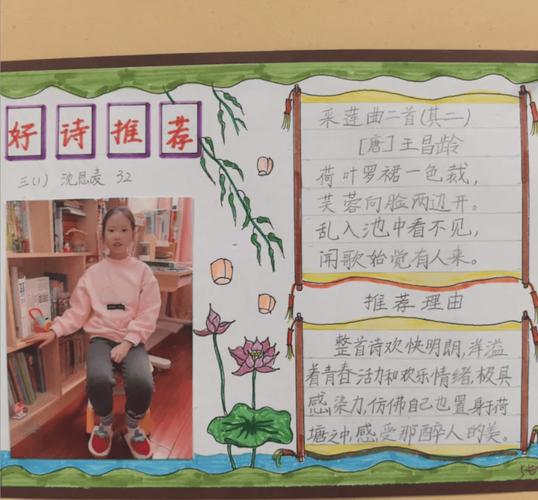 好诗推荐
三(1) 沈思凌 32
采莲曲二首(其二)
[唐]王昌龄
荷叶罗裙一色裁,
芙蓉向脸两边开。
乱入池中看不见,
闻歌始觉有人来。
推荐理由
整首诗欢快明朗,洋溢
着青春活力和欢乐情绪,极具
感染力,仿佛自己也置身于荷
塘之中,感受那醉人的美。